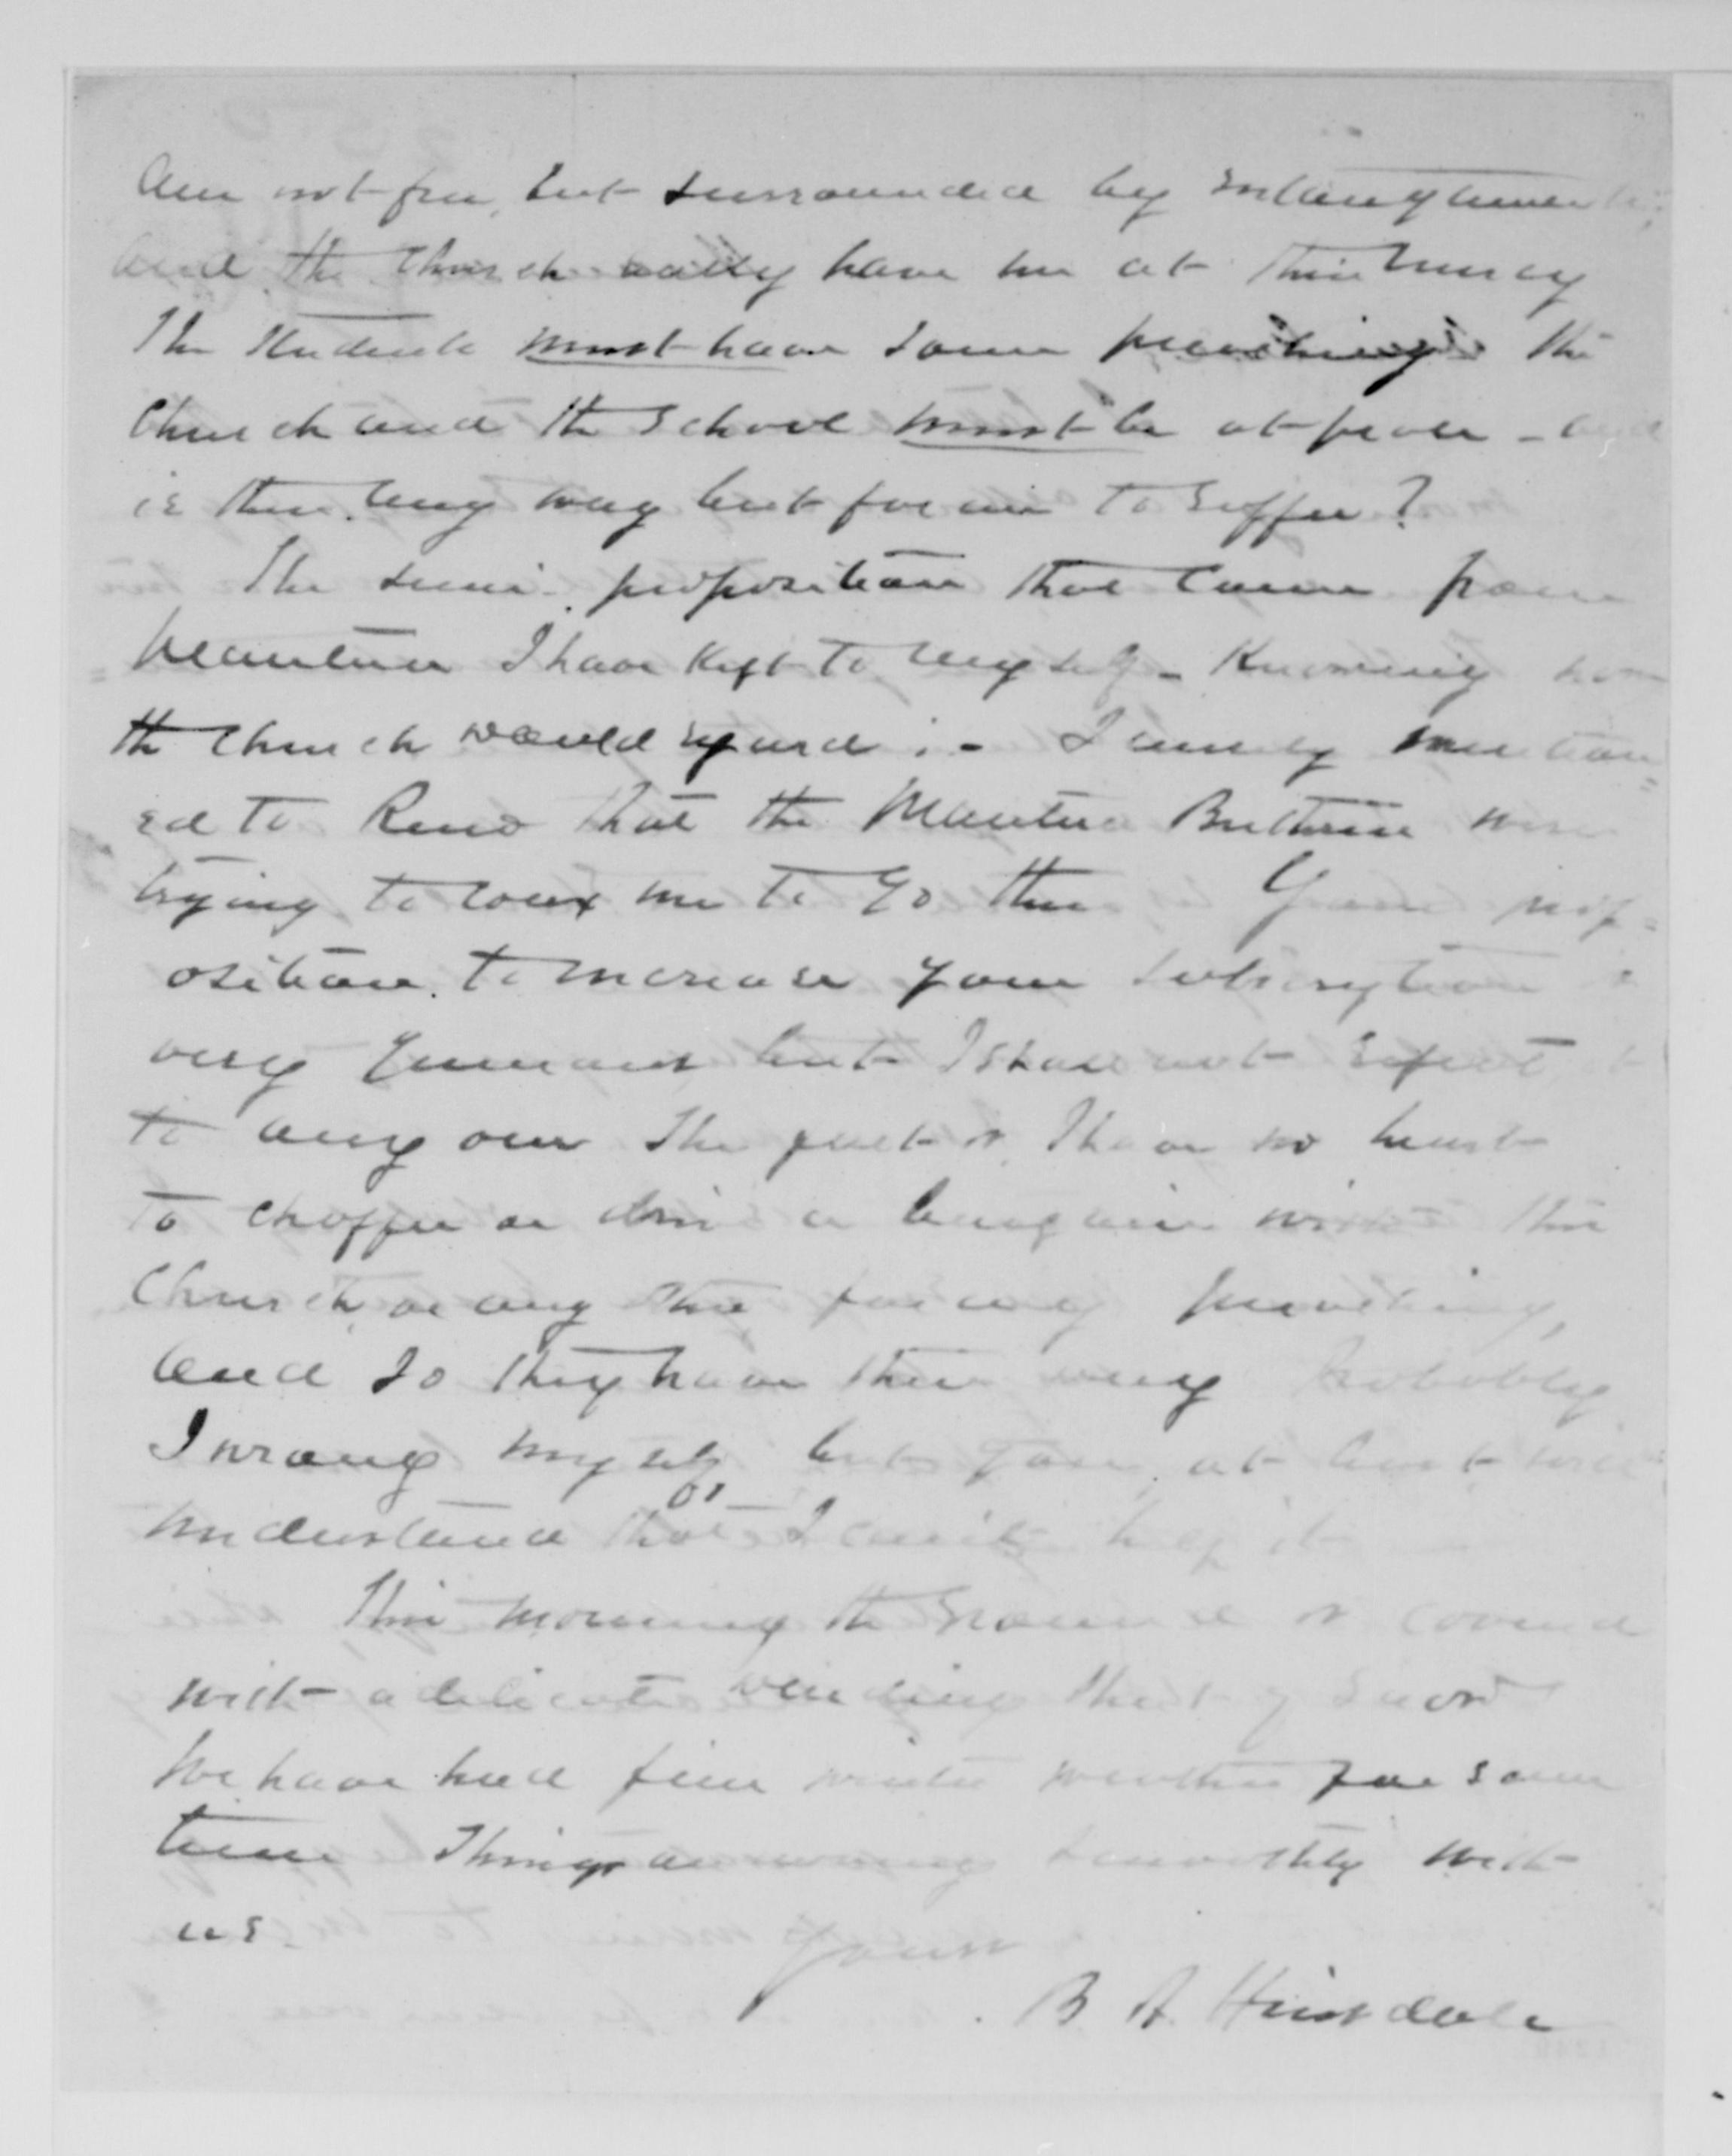 am not free, but surrounded by entanglements,
and the Church really have me at their mercy
The students must have some preaching; the
Church and the School must be at peace - and
is there any way but for me to suffer?
The semi-proposition that came from
Mantua I have kept to myself - Knowing how
the Church would regard it - I merely mention-
ed to Reno that the Mantua Brethren were
trying to coax me to go there Your prop-
osition to increase your subscription is
very generous but I shall not repeat it
to any one The fact is, I have no heart
to chaffer or drive a bargain with this
Church or any other for my preaching,
and so they have their way Probably
I wrong myself, but you, at least will
understand that I can't help it
This morning the ground is covered
with a delicate snow
We have had fine winter weather for some
time Things are moving smoothly with
us.
Yours
B A Hinsdale